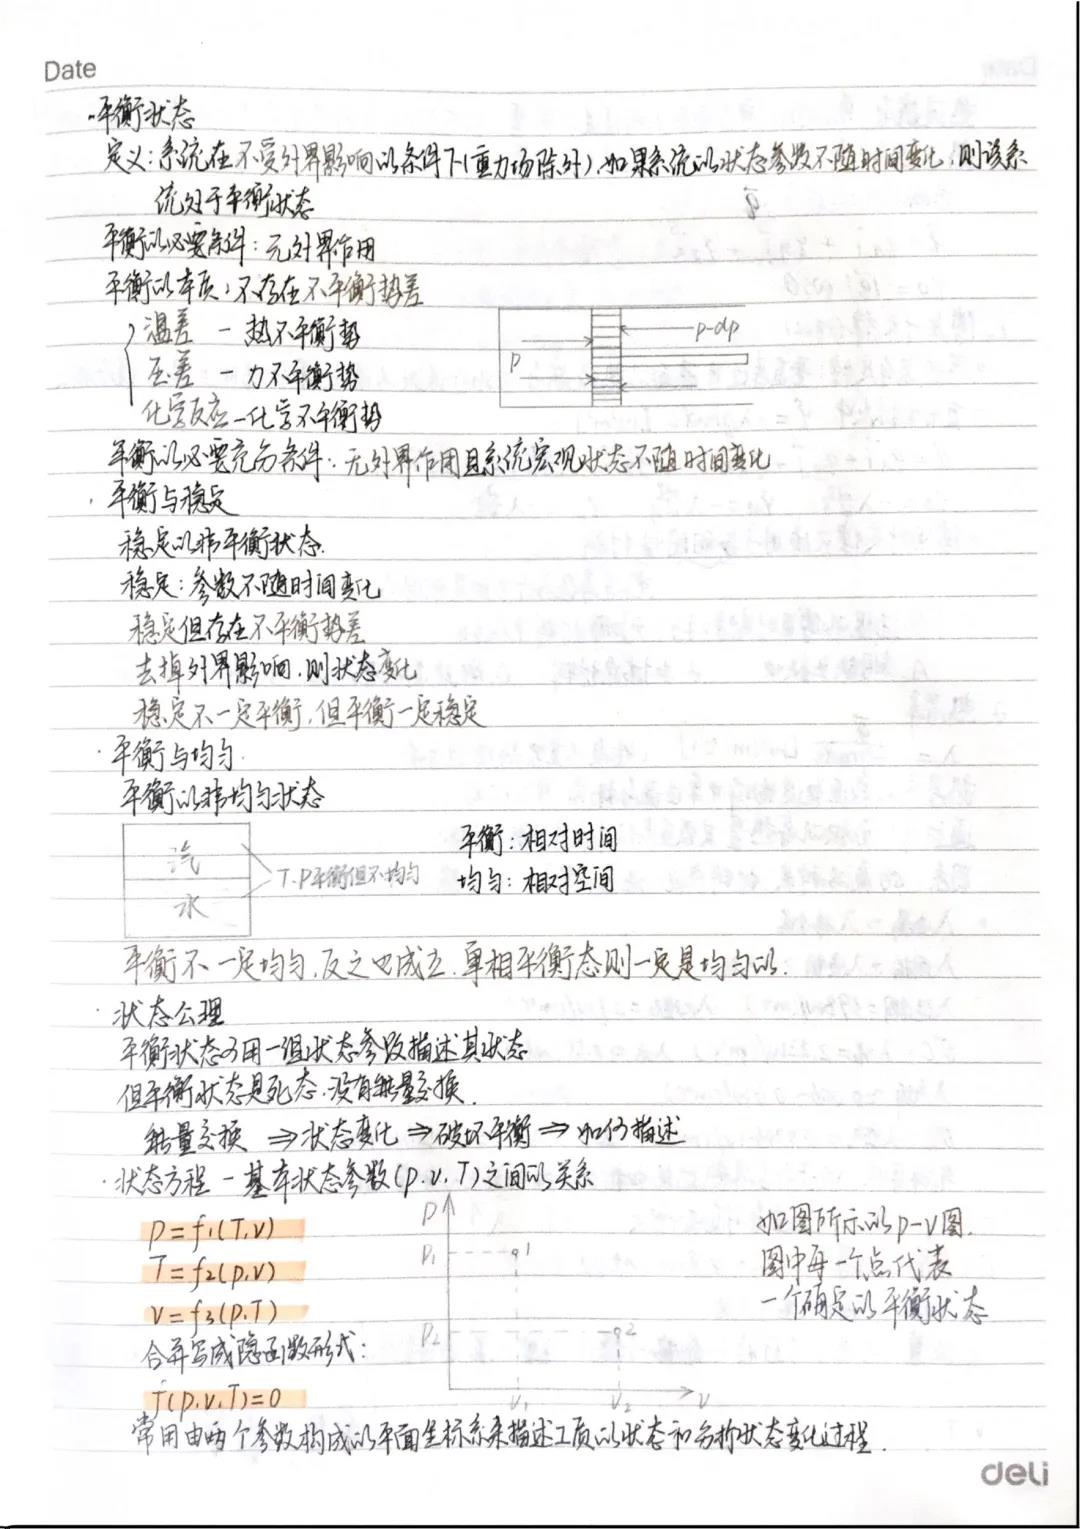 Date
·平衡状态
定义:系统在不受外界影响的条件下(重力场除外),如果系统的状态参数不随时间变化,则该系
统处于平衡状态
平衡的必要条件:无外界作用
平衡的本质:不存在不平衡势差
温差 — 热不平衡势
压差 — 力不平衡势
化学反应—化学不平衡势
p
p-dp
平衡的必要充分条件:无外界作用且系统宏观状态不随时间变化
·平衡与稳定
稳定的非平衡状态.
稳定:参数不随时间变化
稳定但存在不平衡势差
去掉外界影响,则状态变化
稳定不一定平衡,但平衡一定稳定
·平衡与均匀.
平衡的非均匀状态
汽
水
T.P平衡但不均匀
平衡:相对时间
均匀:相对空间
平衡不一定均匀,反之也成立.单相平衡态则一定是均匀的.
·状态公理
平衡状态可用一组状态参数描述其状态
但平衡状态是死态,没有能量交换.
能量交换 ⇒状态变化⇒破坏平衡⇒如何描述
·状态方程 — 基本状态参数(p.v.T)之间的关系
p=f₁(T,v)
T=f₂(p,v)
v=f₃(p.T)
合并写成隐函数形式:
f(p.v.T)=0
p
p₁
1
p₂
2
v₁
v₂
v
如图所示的p-v图.
图中每一个点代表
一个确定的平衡状态
常用由两个参数构成的平面坐标系来描述工质的状态和分析状态变化过程.
deli